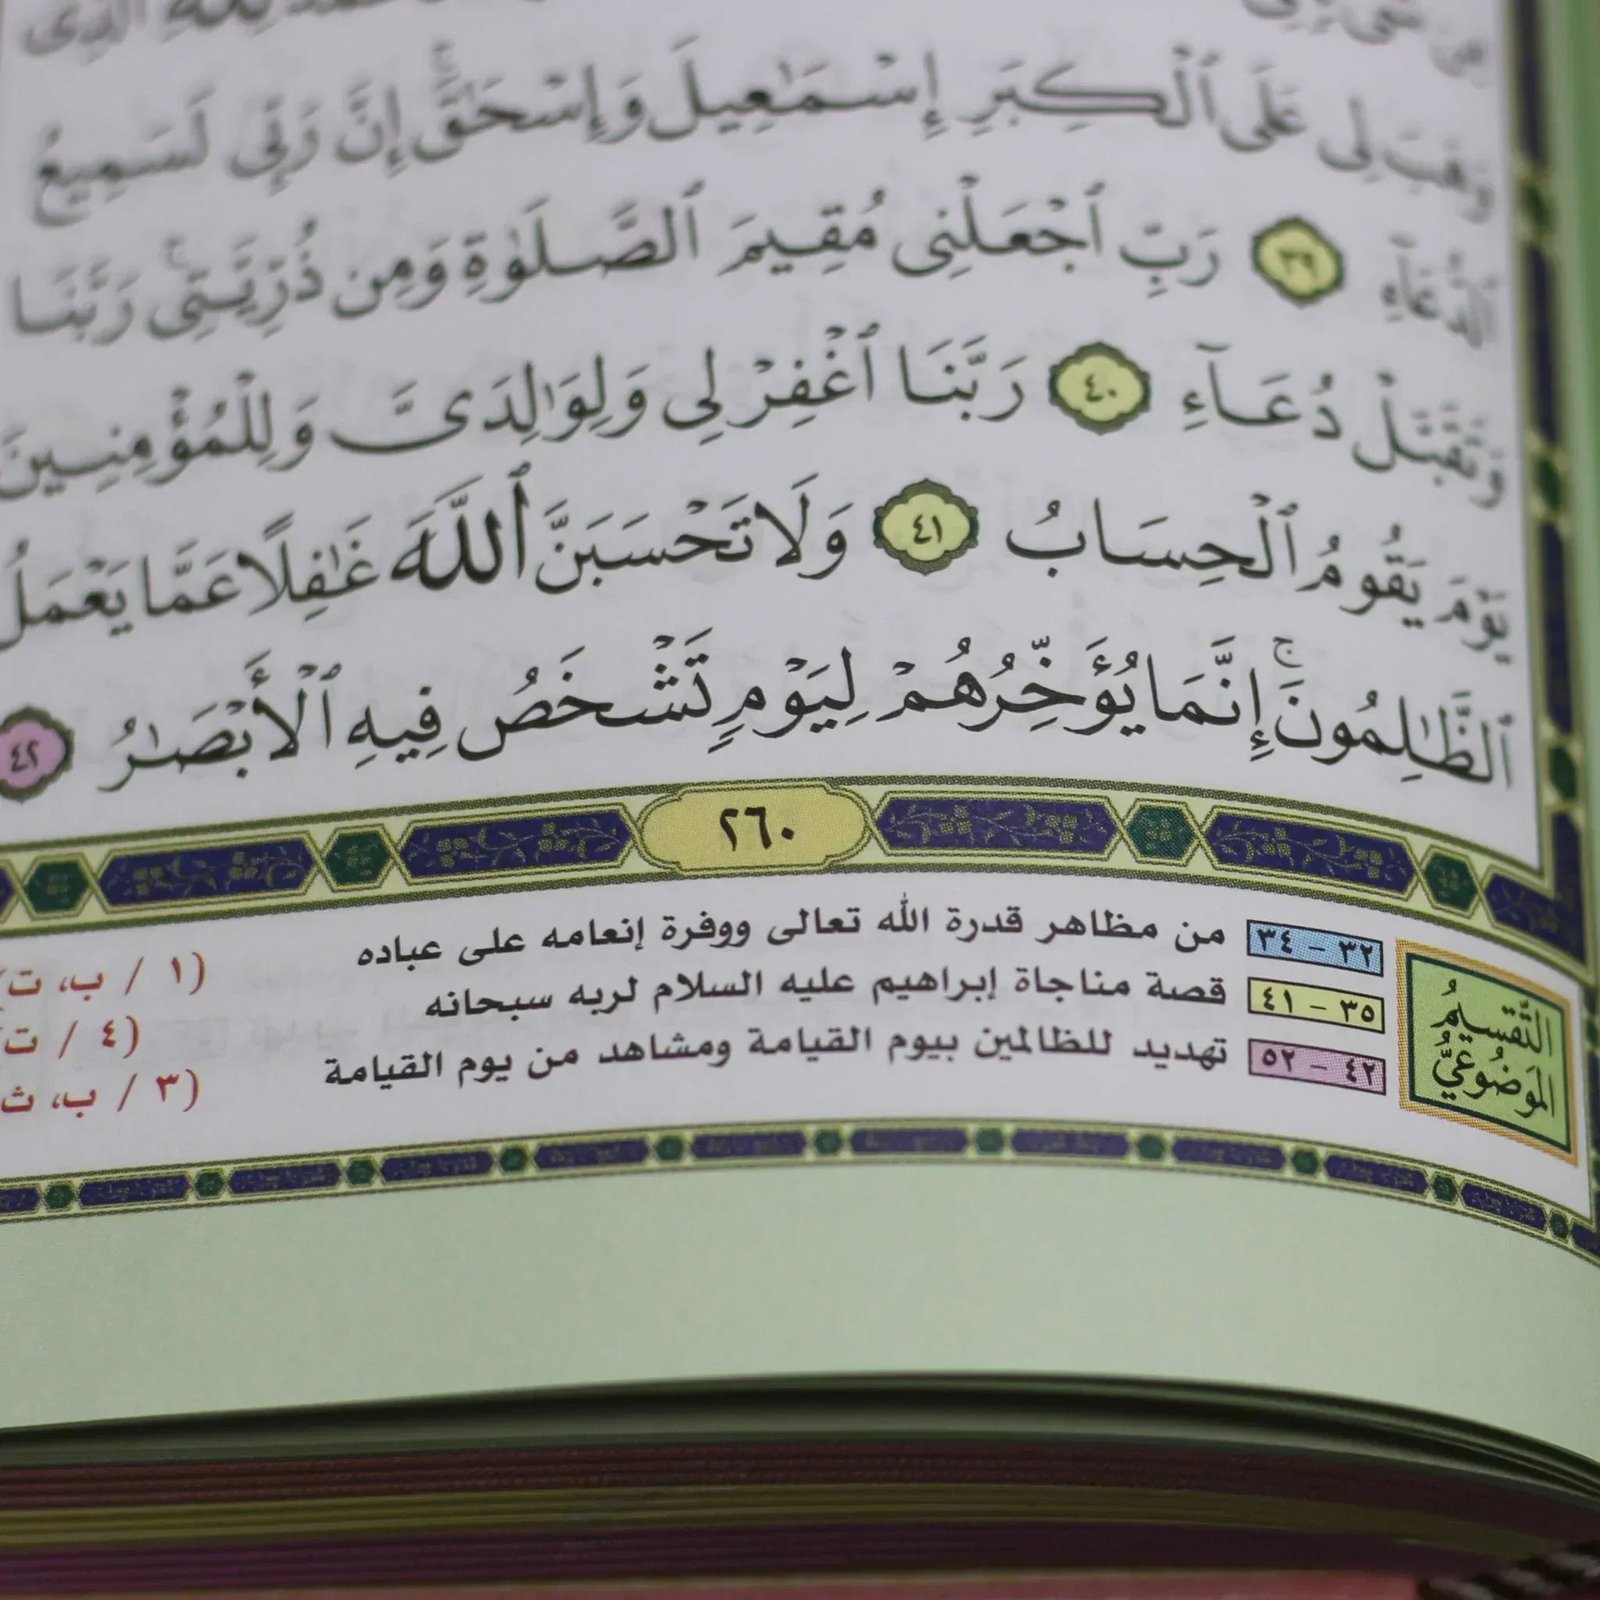 لِلَّهِ ٱلَّذِى
وَهَبَ لِى عَلَى ٱلْكِبَرِ إِسْمَٰعِيلَ وَإِسْحَٰقَۚ إِنَّ رَبِّى لَسَمِيعُ
ٱلدُّعَآءِ ٣٩ رَبِّ ٱجْعَلْنِى مُقِيمَ ٱلصَّلَوٰةِ وَمِن ذُرِّيَّتِىۚ رَبَّنَا
وَتَقَبَّلْ دُعَآءِ ٤٠ رَبَّنَا ٱغْفِرْ لِى وَلِوَٰلِدَىَّ وَلِلْمُؤْمِنِينَ
يَوْمَ يَقُومُ ٱلْحِسَابُ ٤١ وَلَا تَحْسَبَنَّ ٱللَّهَ غَٰفِلًا عَمَّا يَعْمَلُ
ٱلظَّٰلِمُونَۚ إِنَّمَا يُؤَخِّرُهُمْ لِيَوْمٍ تَشْخَصُ فِيهِ ٱلْأَبْصَٰرُ ٤٢
٢٦٠
التَّقسيمُ المَوضُوعيُّ
٣٢ – ٣٤ من مظاهر قدرة الله تعالى ووفرة إنعامه على عباده (١ / ب، ت)
٣٥ – ٤١ قصة مناجاة إبراهيم عليه السلام لربه سبحانه (٤ / ت)
٤٢ – ٥٢ تهديد للظالمين بيوم القيامة ومشاهد من يوم القيامة (٣ / ب، ث